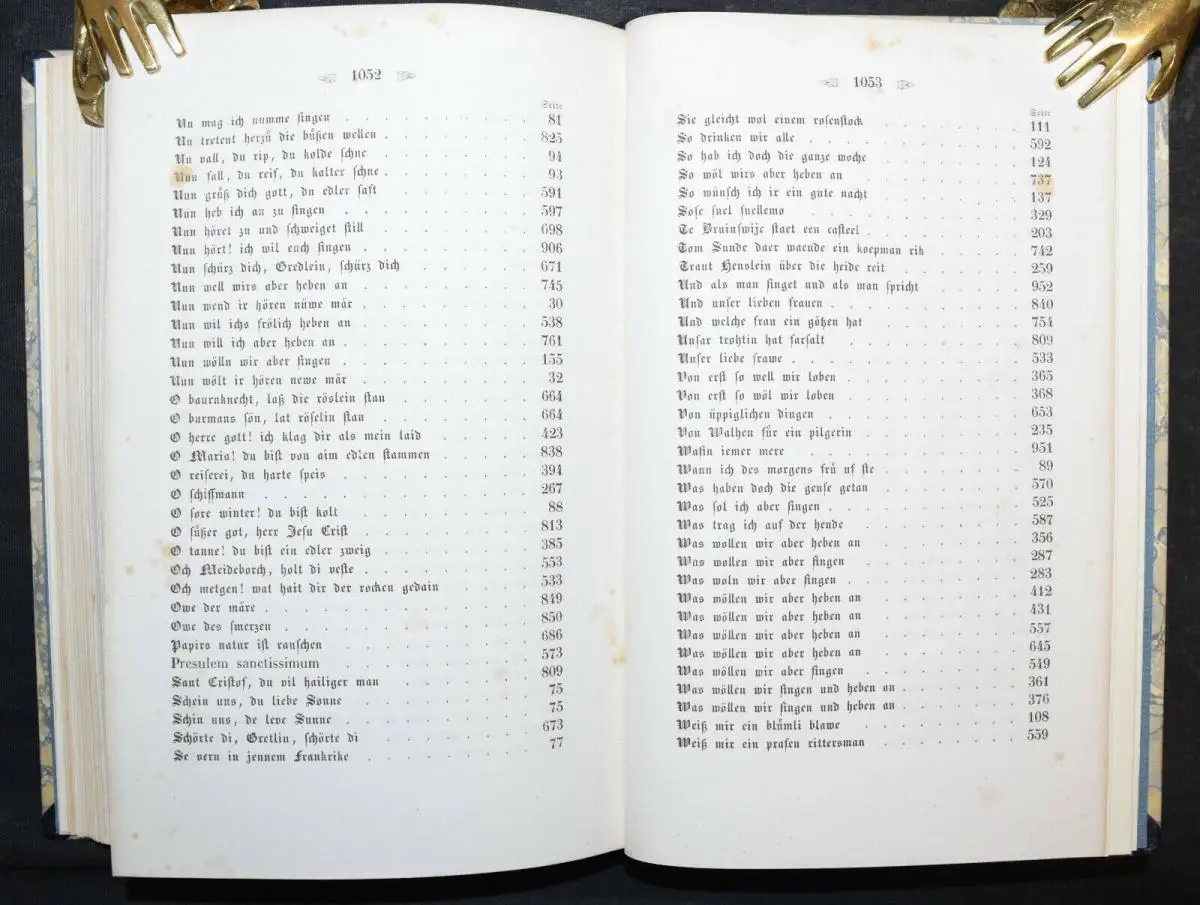 1052
Seite
Nu mag ich numme singen 81
Nu tretent herzů die bůßen wellen 825
Nu vall, du rip, du kolde schne 94
Nun fall, du reif, du kalter schne 93
Nun grüß dich gott, du edler saft 591
Nun heb ich an zu singen 597
Nun höret zu und schweiget still 698
Nun hört! ich wil euch singen 906
Nun schürz dich, Gredlein, schürz dich 671
Nun well wirs aber heben an 745
Nun wend ir hören nüwe mär 30
Nun wil ichs frölich heben an 538
Nun will ich aber heben an 761
Nun wölln wir aber singen 155
Nun wölt ir hören newe mär 32
O baurnknecht, laß die röslein stan 664
O burmans sön, lat röselin stan 664
O herre gott! ich klag dir als mein laid 423
O Maria! du bist von aim edlen stammen 838
O reiserei, du harte speis 394
O schiffmann 267
O sore winter! du bist kolt 88
O süßer got, herr Jesu Crist 813
O tanne! du bist ein edler zweig 385
Och Meideborch, holt di veste 553
Och metgen! wat hait dir der rocken gedain 533
Owe der märe 849
Owe des smerzen 850
Papirs natur ist rauschen 686
Presulem sanctissimum 573
Sant Cristof, du vil hailiger man 809
Schein uns, du liebe Sonne 75
Schin uns, de leve Sunne 75
Schörte di, Gretlin, schörte di 673
Se vern in jennem Frankrike 77
1053
Seite
Sie gleicht wol einem rosenstock 111
So drinken wir alle 592
So hab ich doch die ganze woche 124
So wöl wirs aber heben an 737
So wünsch ich ir ein gute nacht 137
Sose snel snellemo 329
Te Bruinswijc staet een casteel 203
Tom Sunde daer waende ein koepman rik 742
Traut Henslein über die heide reit 259
Und als man singet und als man spricht 952
Und unser lieben frauen 840
Und welche frau ein götzen hat 754
Unsar trohtin hat farsalt 809
Unser liebe frawe 533
Von erst so well wir loben 365
Von erst so wöl wir loben 368
Von üppiglichen dingen 653
Von Walhen für ein pilgerin 235
Wafin iemer mere 951
Wann ich des morgens frü uf ste 89
Was haben doch die gense getan 570
Was sol ich aber singen 525
Was trag ich auf der hende 587
Was wollen wir aber heben an 356
Was wollen wir aber singen 287
Was woln wir aber singen 283
Was wöllen wir aber heben an 412
Was wöllen wir aber heben an 431
Was wöllen wir aber heben an 557
Was wöllen wir aber heben an 645
Was wöllen wir aber singen 549
Was wöllen wir singen und heben an 361
Was wöllen wir singen und heben an 376
Weiß mir ein blůmli blawe 108
Weiß mir ein prasen rittersman 559